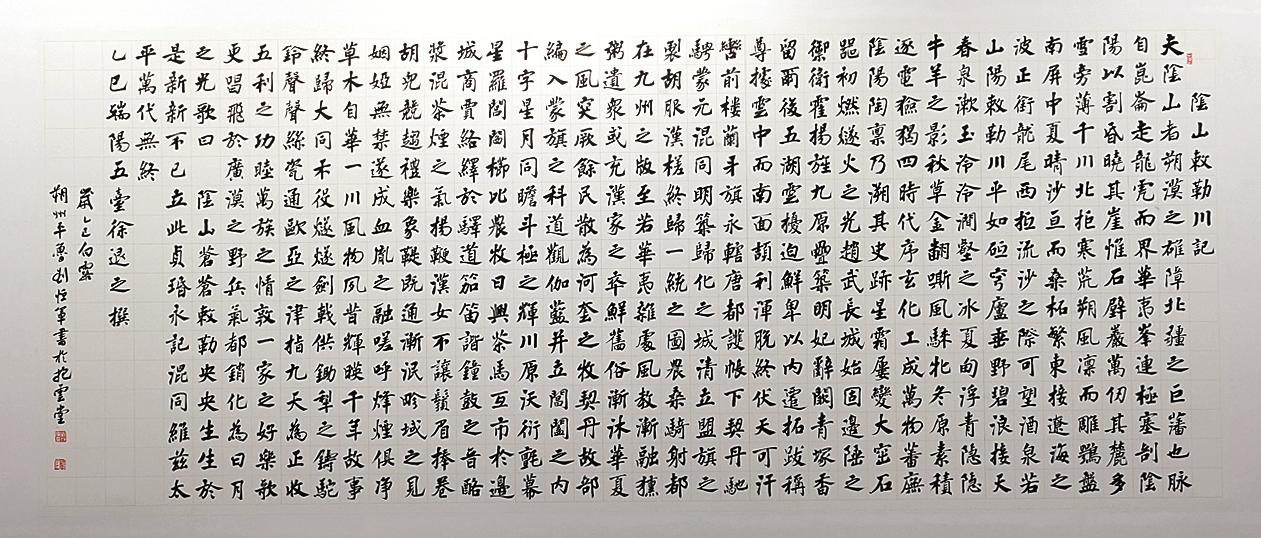 陰山敕勒川記
夫陰山者朔漠之雄障北疆之巨藩也脈
自崑崙走龍虎而界華夷峯連極塞剖陰
陽以割昏曉其崖惟石壁巖萬仞其麓多
雪旁薄千川北拒寒荒朔風凜而雕鶚盤
南屏中夏晴沙亘而桑柘繁東接遼海之
波正銜龍尾西拒流沙之際可望酒泉若
山陽敕勒川平如砥穹廬垂野碧浪接天
春泉漱玉泠泠澗壑之冰夏甸浮青隱隱
牛羊之影秋草金翻嘶風騋牝冬原素積
逐電獫猲四時代序玄化工成萬物蕃廡
陰陽陶稟乃溯其史跡星霜屢變大窰石
器初燃燧火之光趙武長城始固邊陲之
禦衛霍揚旌九原疊築明妃辭闕青塚香
留爾後五湖靈擾迫鮮卑以内遷拓跋稱
尊據雲中而南面頡利渾脫終伏天可汗
轡前樓蘭牙旗永轄唐都護帳下契丹馳
騁蒙元混同明築歸化之城清立盟旗之
製胡服漢槎終歸一統之圖農桑騎射都
在九州之版至若華夷雜處風教漸融獯
粥遺衆或充漢家之卒鮮舊俗漸沐華夏
之風突厥餘民散為河套之牧契丹故部
編入蒙旗之科道觀伽藍并立闤闠之内
十字星月同瞻斗極之輝川原沃衍氈幕
星羅閭閻櫛比農牧日興茶馬互市於邊
城商賈絡繹於驛道笳笛諧鐘鼓之音酪
漿混茶煙之氣揚鞭漢女不讓鬚眉捧卷
胡兒競趨禮樂象鞮既通漸泯畛域之見
姻婭無禁遂成血胤之融嗟呼烽煙俱净
草木自華一川風物夙昔輝暎千年故事
終歸大同禾役燧燧劍戟供鋤犁之鑄駝
鈴聲聲絲瓷通歐亞之津指九天為正收
五利之功睦萬族之情敦一家之好樂歌
更習飛於廣漠之野兵氣都銷化為日月
之光歌曰 陰山蒼蒼敕勒央央生生於
是新新不已立此貞珉永記混同維兹太
平萬代無終
乙巳端陽五臺徐退之撰
歲乙巳白露
朔州平魯劉恒軍書於抱雲堂